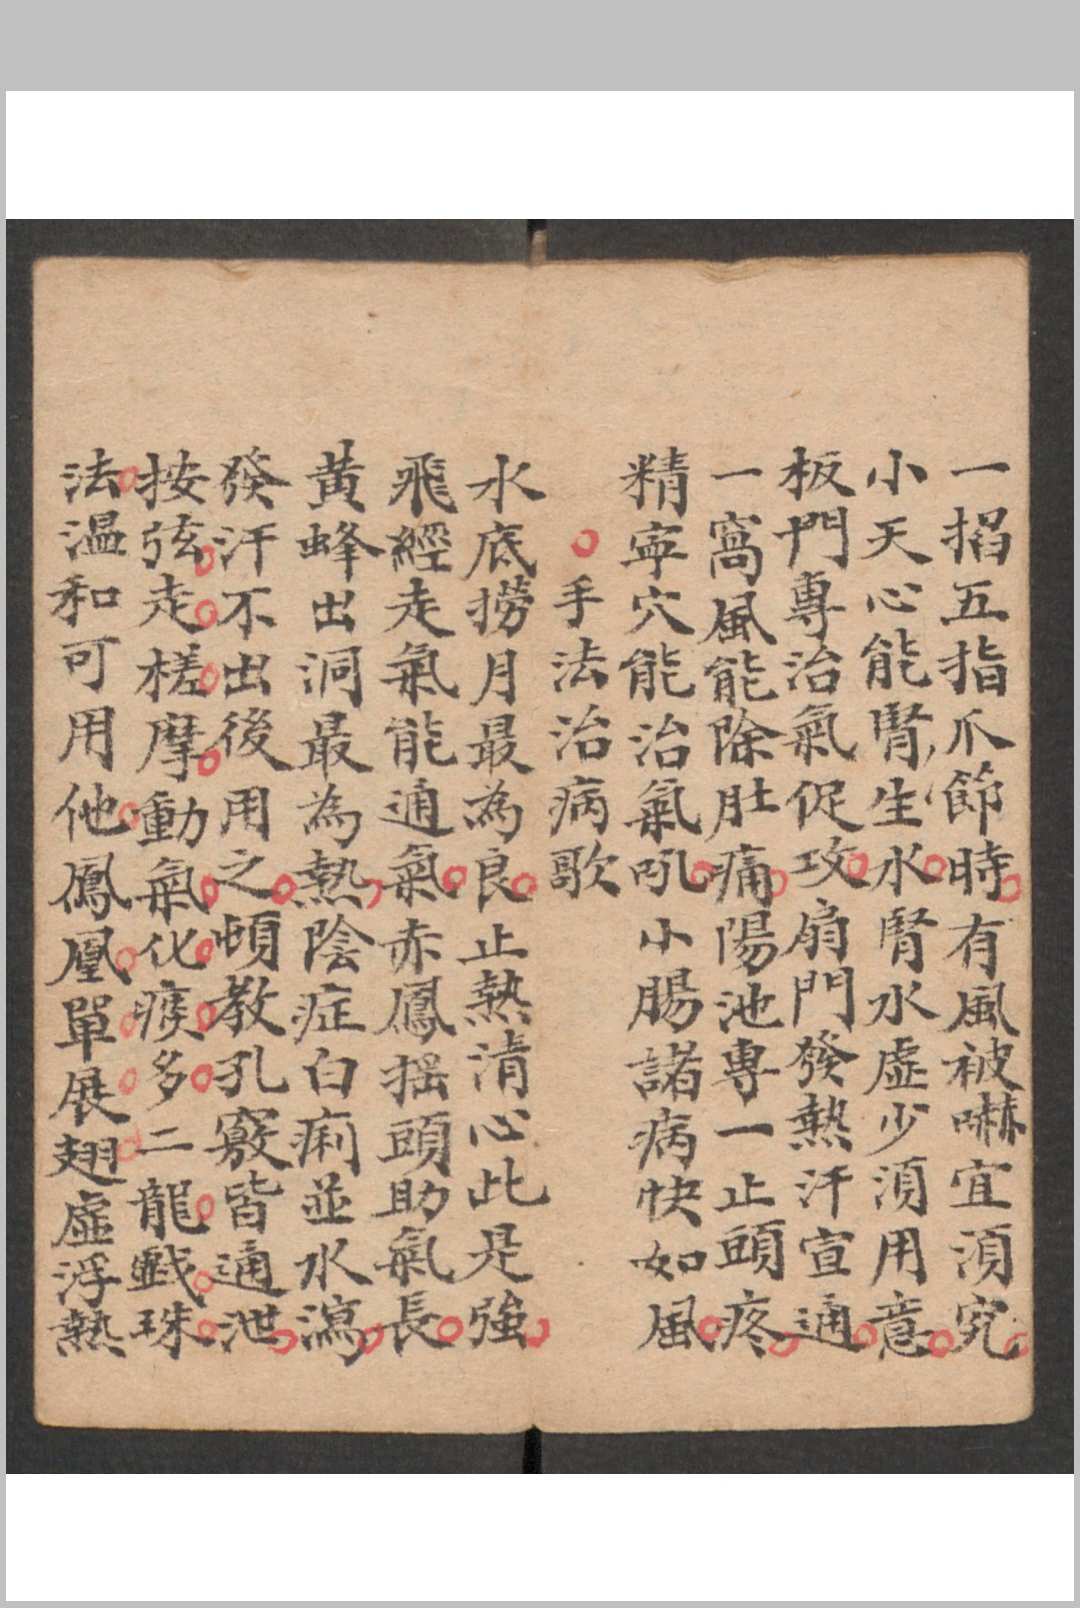 一掐五指爪節時有風被嚇宜須究
小天心能腎生水腎水虛少須用意
板門專治氣促攻扇門發熱汗宣通
一窩風能除肚痛陽池專一止頭疼
精寧穴能治氣吼小腸諸病快如風
手法治病歌
水底撈月最為良止熱清心此是強
飛經走氣能通氣赤鳳搖頭助氣長
黃蜂出洞最為熱陰症白痢並水瀉
發汗不出後用之頓教孔竅皆通泄
按弦走槎摩動氣化痰多二龍戲珠
法溫和可用他鳳凰單展翅虛浮熱